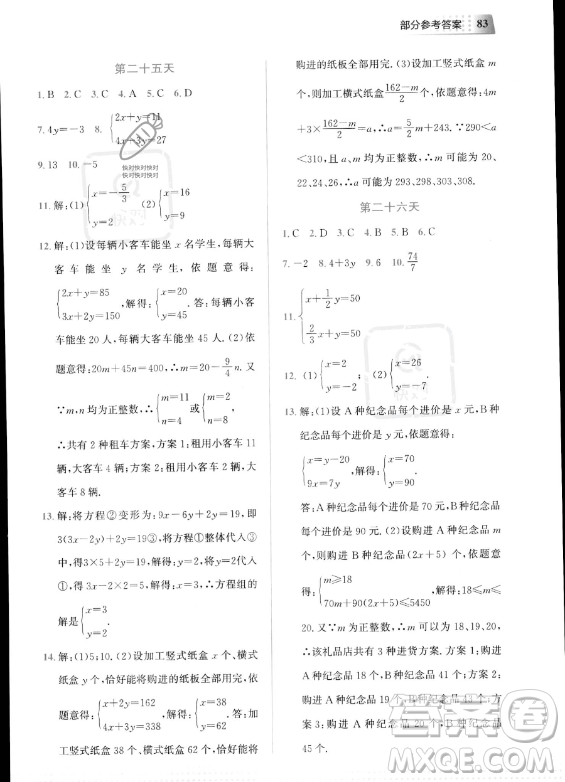 部分参考答案 83
第二十五天
1. B 2. C 3. C 4. A 5. C 6. D
7. 4y=-3 8. {2x+y=11
4x+3y=27
9. 13 10. -5
11. 解:(1){x=-5/3
y=2 (2){x=16
y=9.
12. 解:(1)设每辆小客车能坐 x 名学生,每辆大
客车能坐 y 名学生,依题意,得
{2x+y=85
3x+2y=150,解得:{x=20
y=45.答:每辆小客
车能坐 20 人,每辆大客车能坐 45 人. (2)依
题意得:20m+45n=400,∴m=20-9/4n. 又
∵m,n 均为正整数,∴{m=11
n=4或{m=2
n=8.
∴共有 2 种租车方案,方案 1:租小客车 11
辆,大客车 4 辆;方案 2:租小客车 2 辆,大客
车 8 辆.
13. 解:将方程②变形为:9x-6y+2y=19,即
3(3x-2y)+2y=19③,将方程①整体代入③
中,得3×5+2y=19,解得:y=2,将y=2代入
①,得3x-2×2=5,解得:x=3,∴方程组的
解是{x=3
y=2.
14. 解:(1)5;10. (2)设加工竖式纸盒 x 个、横式
纸盒 y 个,恰好能将购进的纸板全部用完,依
题意得:{x+2y=162
4x+3y=338,解得:{x=38
y=62.答:加
工竖式纸盒 38 个、横式纸盒 62 个,恰好能将
购进的纸板全部用完. (3)设加工竖式纸盒 m
个,则加工横式纸盒(162-m)/2个,依题意得:4m
+3×(162-m)/2=a,∴5/2m+243=a. ∵290<a
<310,且 a,m 均为正整数,∴m 可以为 20,
22,24,26,∴a 可以为 293,298,303,308.
第二十六天
1. C 2. D 3. A 4. B 5. D 6. C
7. -2 8. 4+3y 9. 6 10. 74/7
11. {x+1/2y=50
2/3x+y=50
12. (1){x=2
y=-2; (2){x=26
y=-7.
13. 解:(1)设 A 种纪念品每个进价是 x 元,B 种
纪念品每个进价是 y 元,依题意得:
{y-x=20
9x=7y,解得:{x=70
y=90.
答:A 种纪念品每个进价为 70 元,B 种纪念
品每个进价是 90 元. (2)设购进 B 种纪念品
m 个,则购进 A 种纪念品(2x+5)个,依题意
得:
{m≥18
70m+90(2x+5)≤5450,解得:18≤m≤
20. 又∵m 为整数,∴m 可以为:18,19,20,∴
该礼品店共有 3 种进货方案. 方案 1:购进
A 种纪念品 18 个,B 种纪念品 41 个;方案 2:
购进 A 种纪念品 19 个,B 种纪念品 42 个;方
案 3:购进 A 种纪念品 20 个,B 种纪念品
45 个.
作业帮答案
MXQE.COM